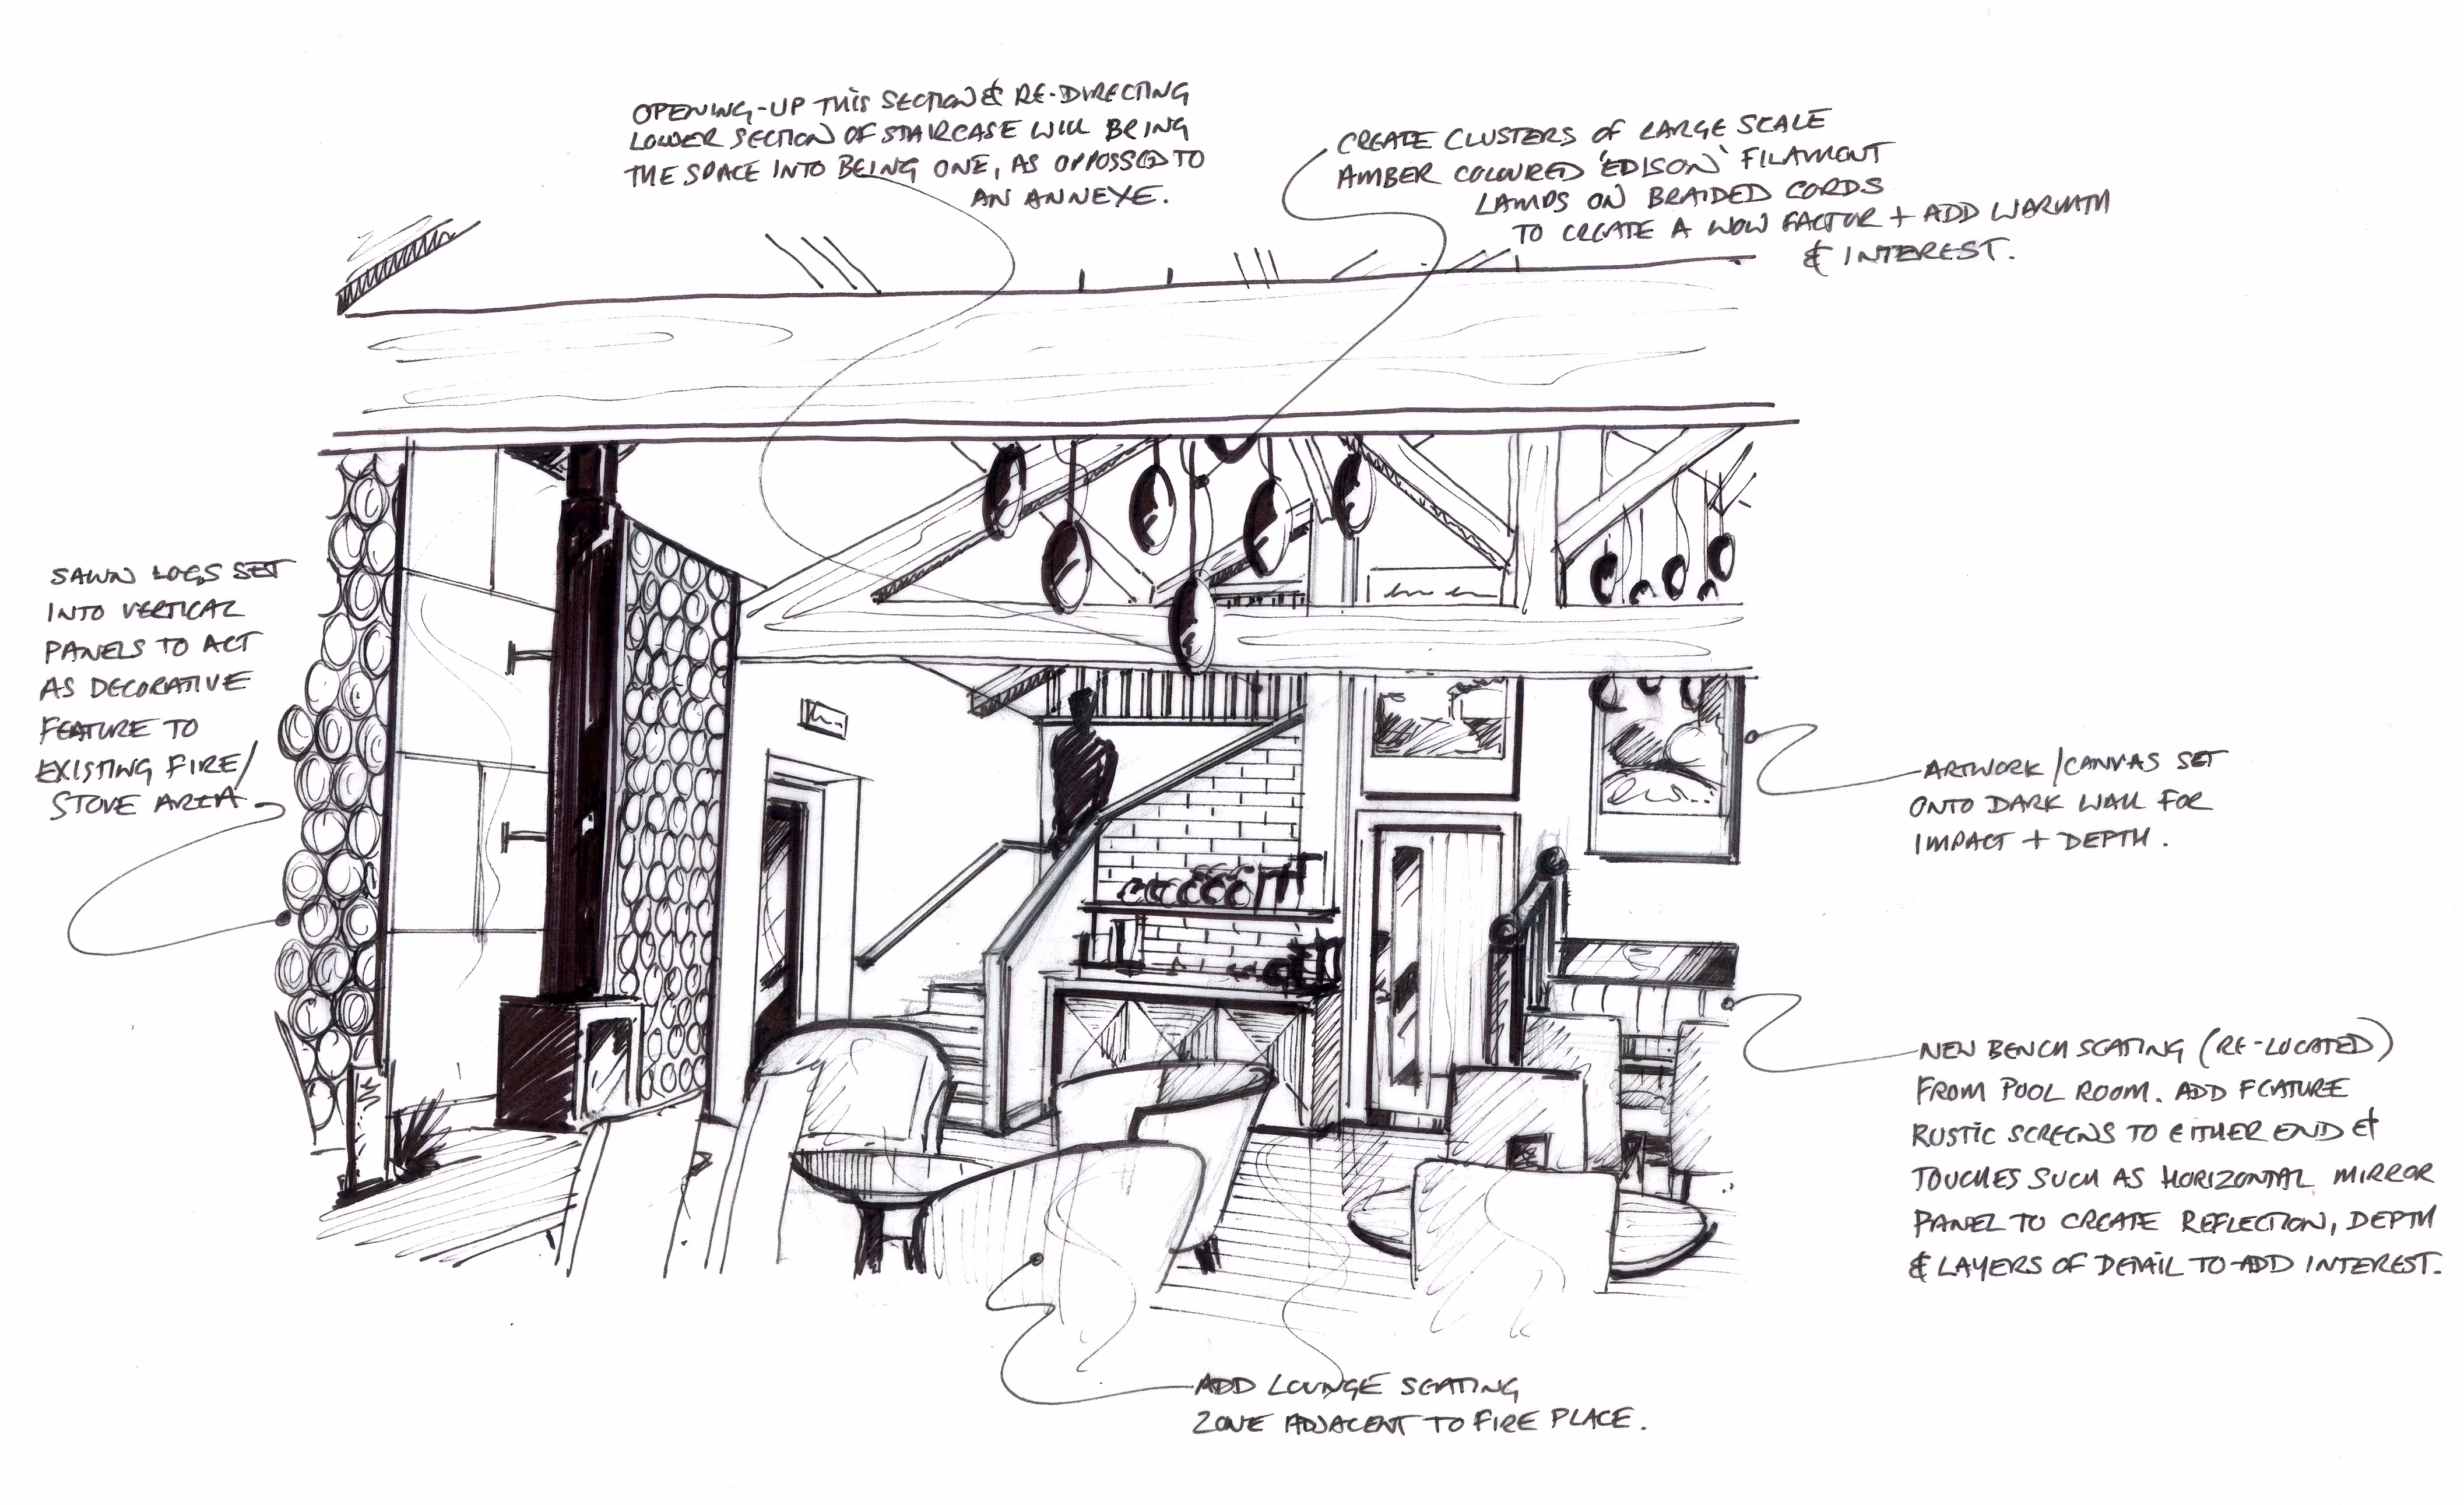 OPENING-UP THIS SECTION & RE-DIRECTING
LOWER SECTION OF STAIRCASE WILL BRING
THE SPACE INTO BEING ONE, AS OPPOSSED TO
AN ANNEXE.
CREATE CLUSTERS OF LARGE SCALE
AMBER COLOURED 'EDISON' FILAMENT
LAMPS ON BRAIDED CORDS
TO CREATE A WOW FACTOR + ADD WARMTH
& INTEREST.
SAWN LOGS SET
INTO VERTICAL
PANELS TO ACT
AS DECORATIVE
FEATURE TO
EXISTING FIRE/
STOVE AREA.
ARTWORK/CANVAS SET
ONTO DARK WALL FOR
IMPACT + DEPTH.
NEW BENCH SEATING (RE-LOCATED)
FROM POOL ROOM. ADD FEATURE
RUSTIC SCREENS TO EITHER END &
TOUCHES SUCH AS HORIZONTAL MIRROR
PANEL TO CREATE REFLECTION, DEPTH
& LAYERS OF DETAIL TO ADD INTEREST.
ADD LOUNGE SEATING
ZONE ADJACENT TO FIRE PLACE.